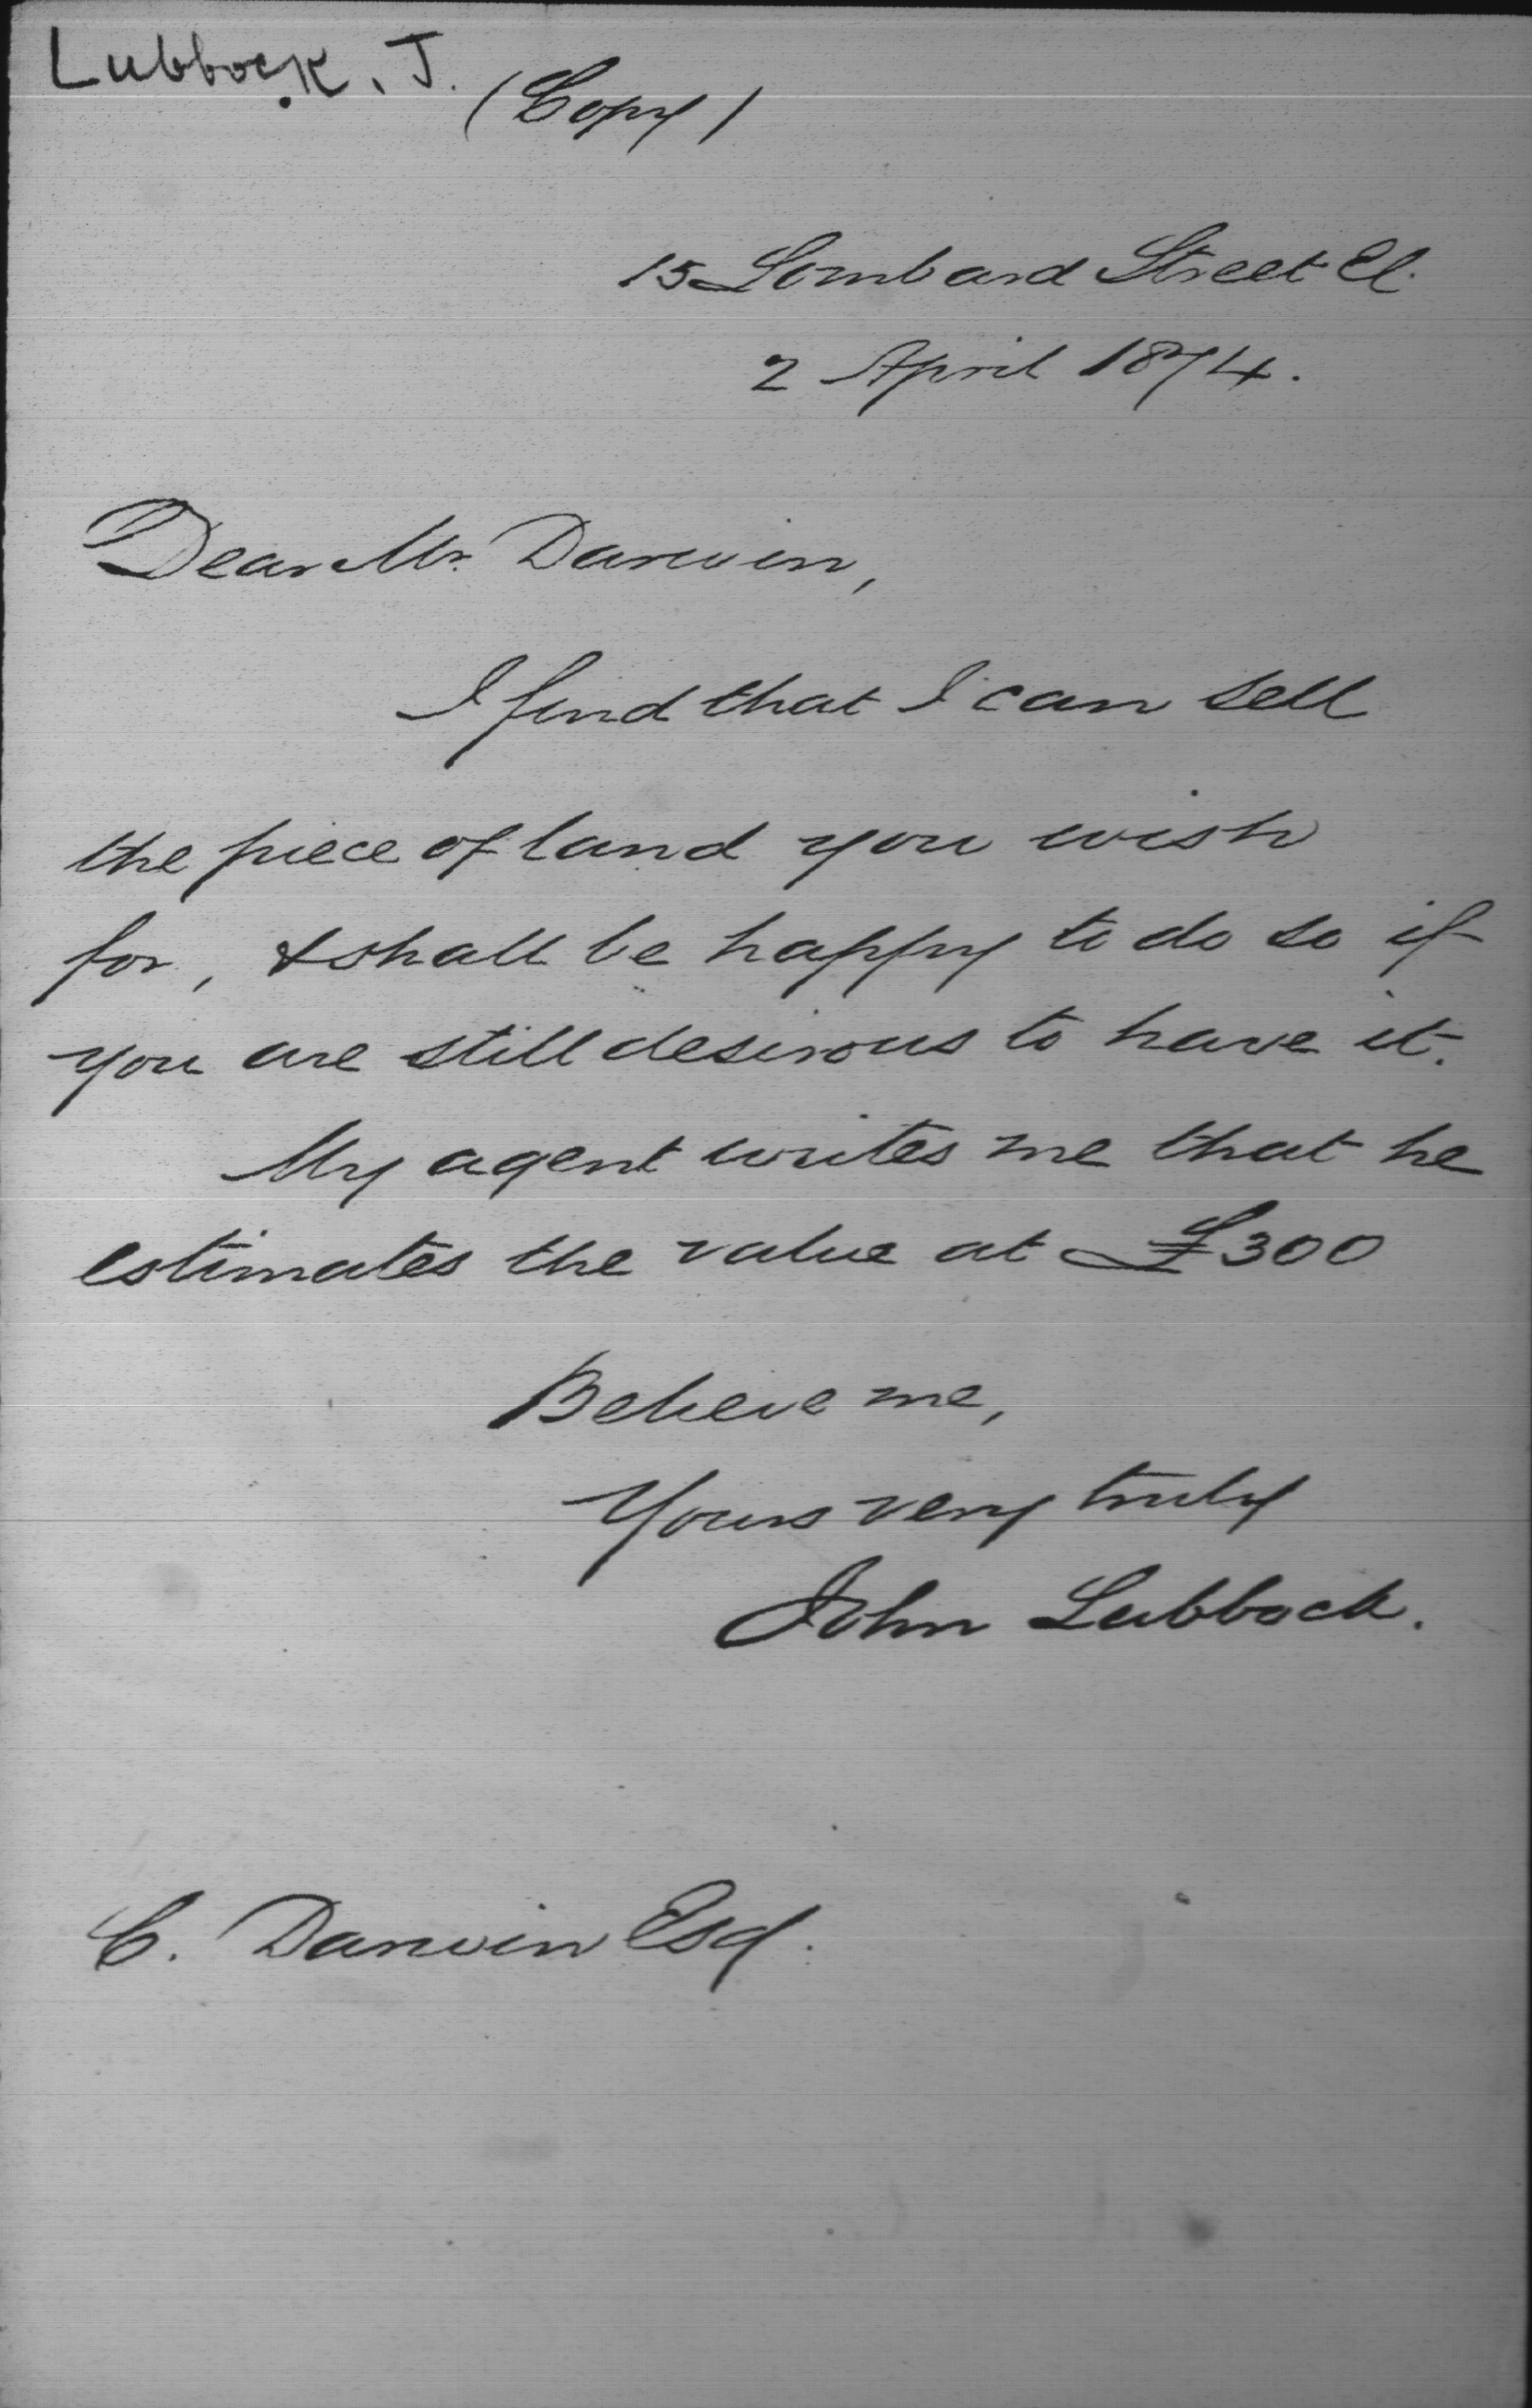 Lubbock, J.
(Copy)
15 Lombard Street E.C.
2 April 1874.
Dear Mr. Darwin,
I find that I can sell
the piece of land you wish
for, & shall be happy to do so if
you are still desirous to have it.
My agent writes me that he
estimates the value at £300
Believe me,
Yours very truly
John Lubbock.
C. Darwin Esq.